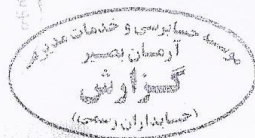 موسسه حسابرسی و خدمات مدیریت
آرمان بصیر
گزارش
(حسابداران رسمی)